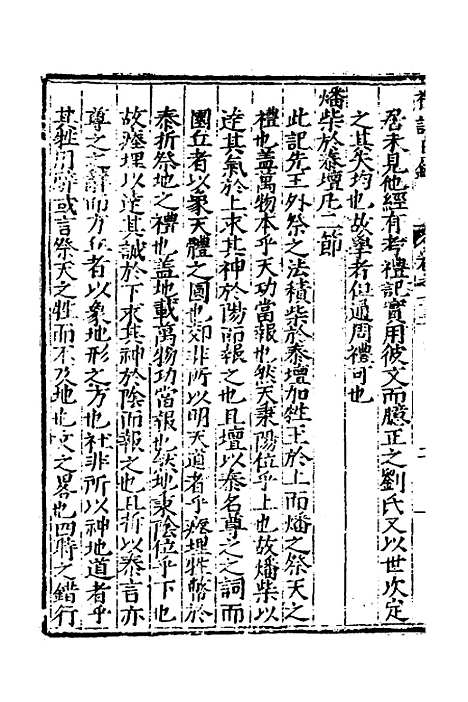 居未見他經有考禮記實用彼文而臆正之劉氏又以世次定
之其失均也故學者但通周禮可也
燔柴於泰壇凡二節
此記先王外祭之法積柴於泰壇加牲玉於上而燔之祭天之
禮也蓋萬物本乎天功當報也然天秉陽位乎上也故燔柴以
達其氣於上求其神於陽而報之也且壇以泰名尊之之詞而
圜丘者以象天體之圜也郊非所以明天道者乎瘞埋牲幣於
泰折祭地之禮也蓋地載萬物功當報也然地秉陰位乎下也
故瘞埋以達其誠於下求其神於陰而報之也且折以泰言亦
尊之之辭而方丘者以象地形之方也社非所以神地道者乎
其牲用騂或言祭天之牲而不及地也文之畧也四時之錯行